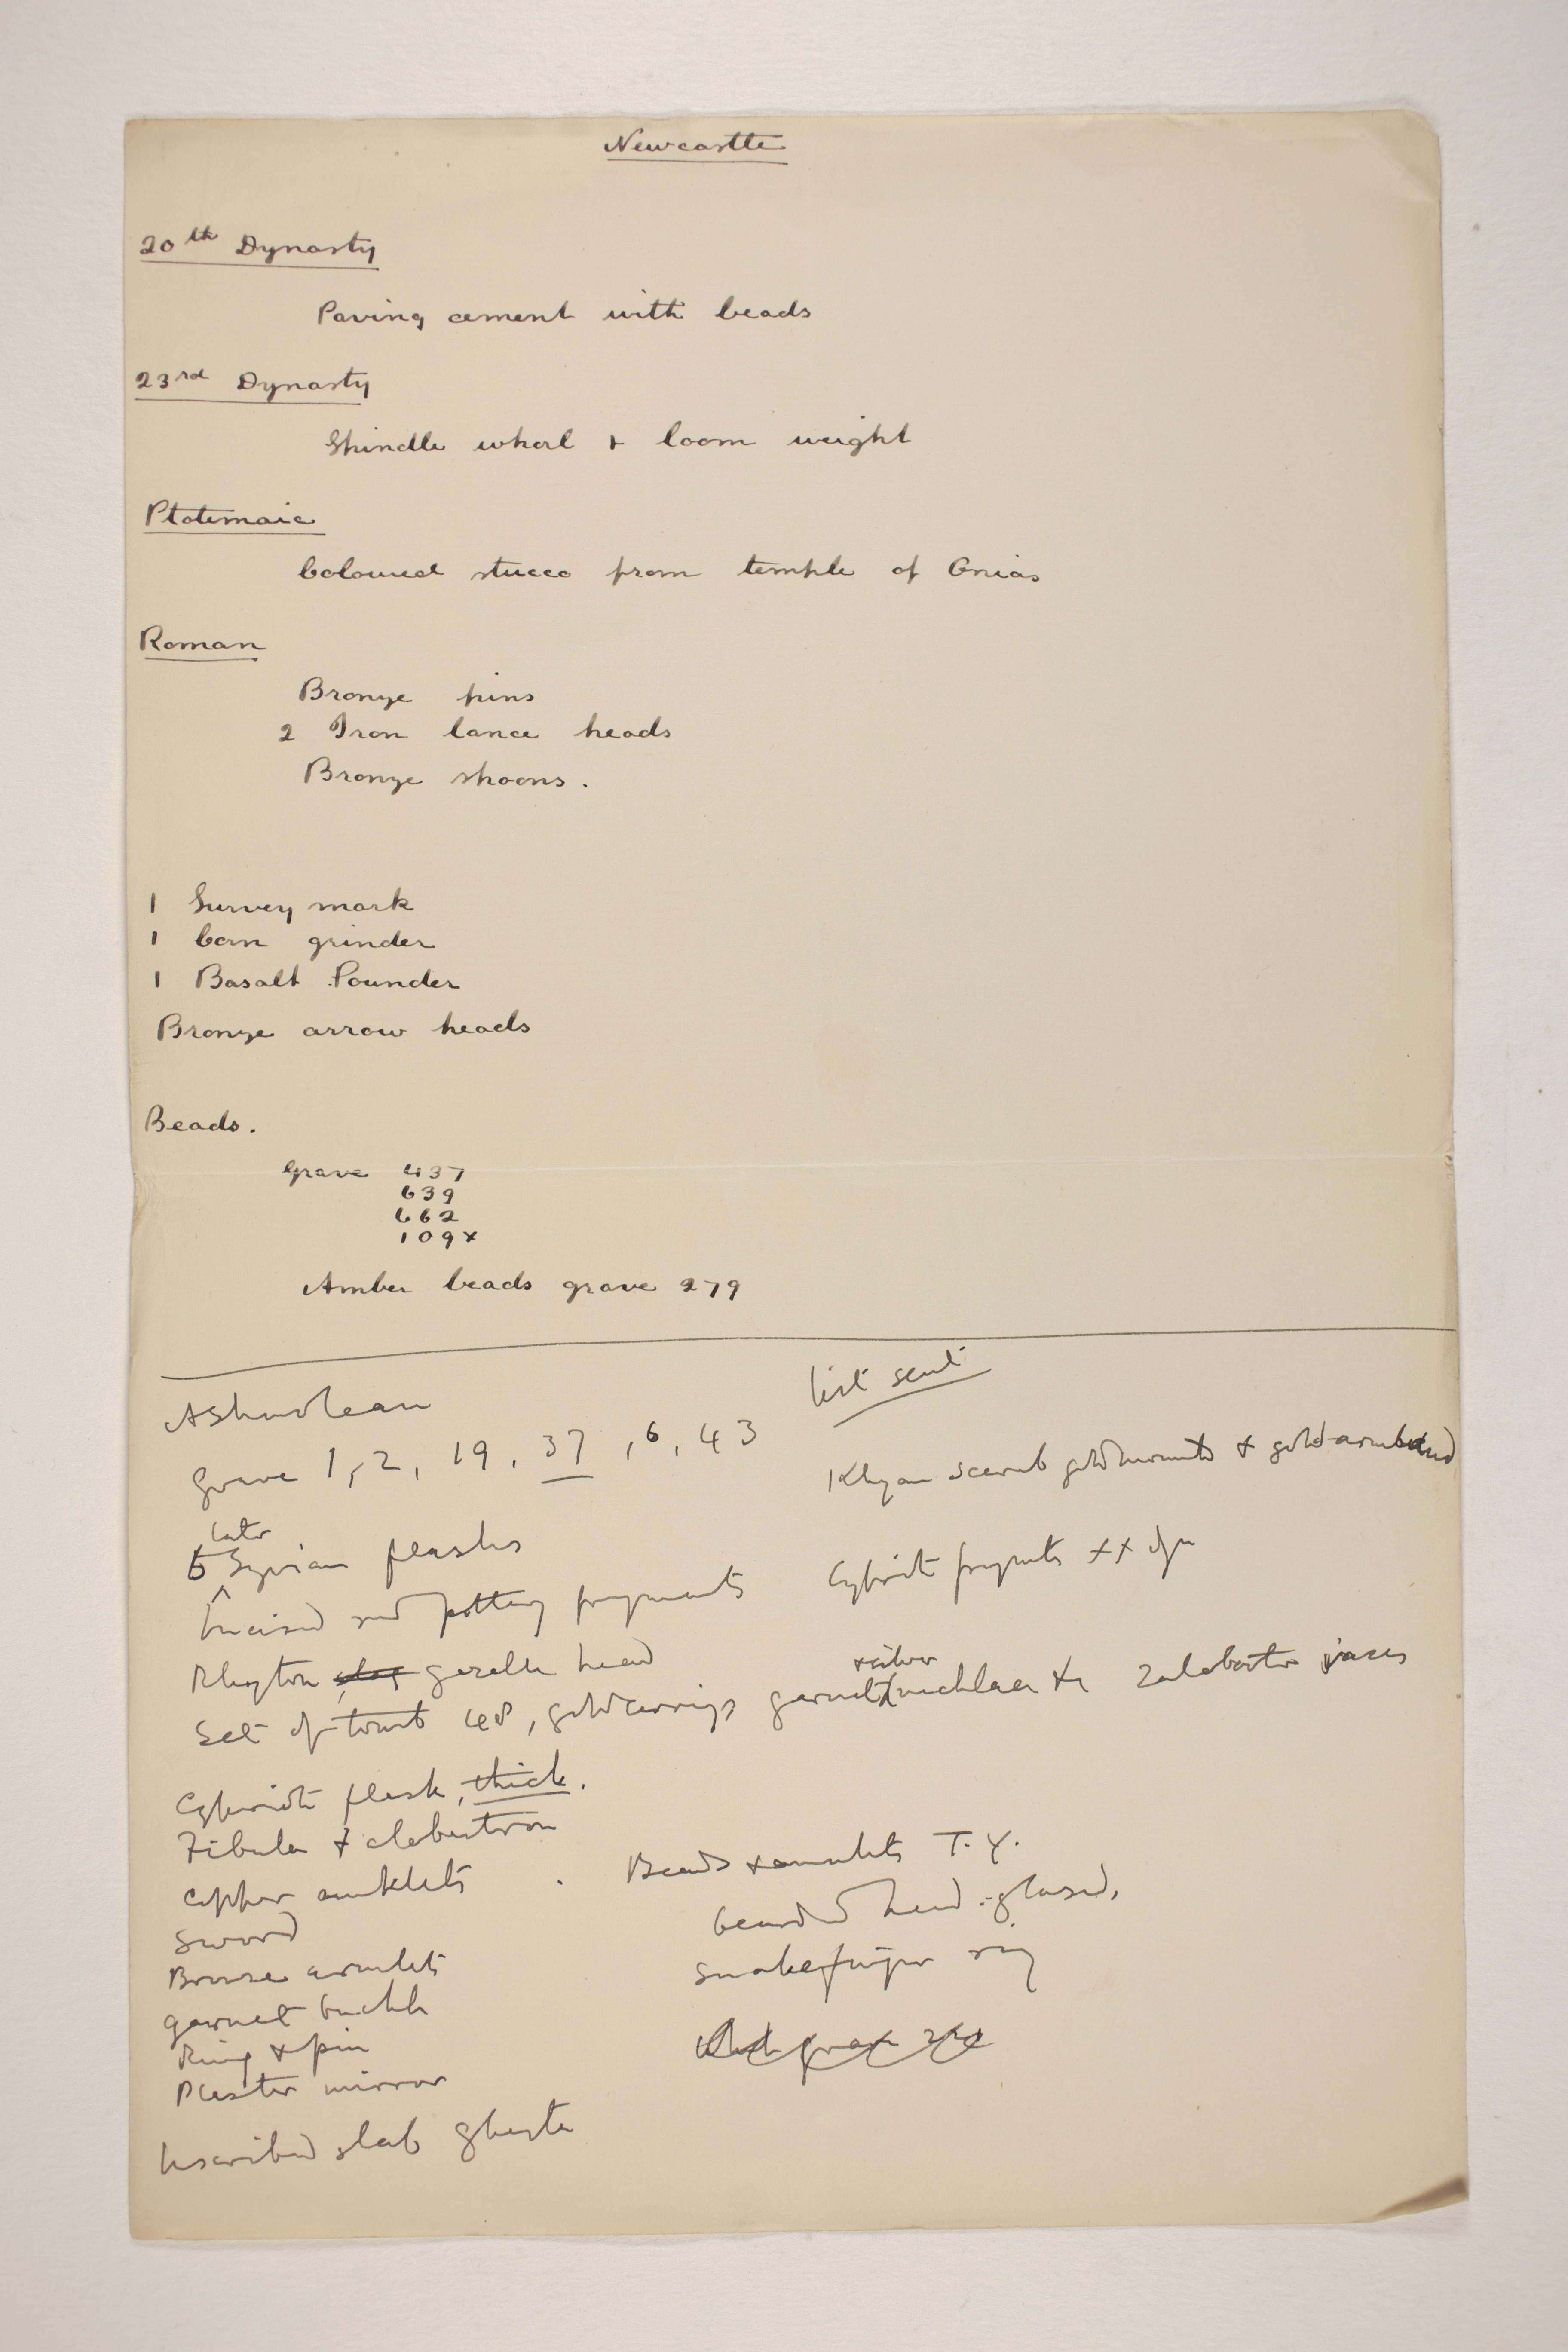 Newcastle
20th Dynasty
Paving cement with beads
23rd Dynasty
Spindle whorl + loom weight
Ptolemaic
Coloured stucco from temple of Onias
Roman
Bronze pins
2 Iron lance heads
Bronze spoons.
1 Survey mark
1 Corn grinder
1 Basalt Pounder
Bronze arrow heads
Beads.
Grave 437
639
662
109x
Amber beads grave 279
Ashmolean
list sent
Grave 1, 2, 19, 37, 6, 43
Khyan scarab gold mounts + gold armband
later
6 Syrian flasks
Incised red pottery fragments
Cypriote fragments
Rhyton gazelle head
+ silver
Set of tomb 48, gold earrings garnet necklace 2 alabaster vases
Cypriote flask, thick.
Fibula + alabastron
Copper anklets
Beads + amulets T.Y.
Sword
bearded head glazed,
Bronze armlets
snake finger ring
garnet buckle
Ring + pin
Plaster mirror
Inscribed slab Gheyta